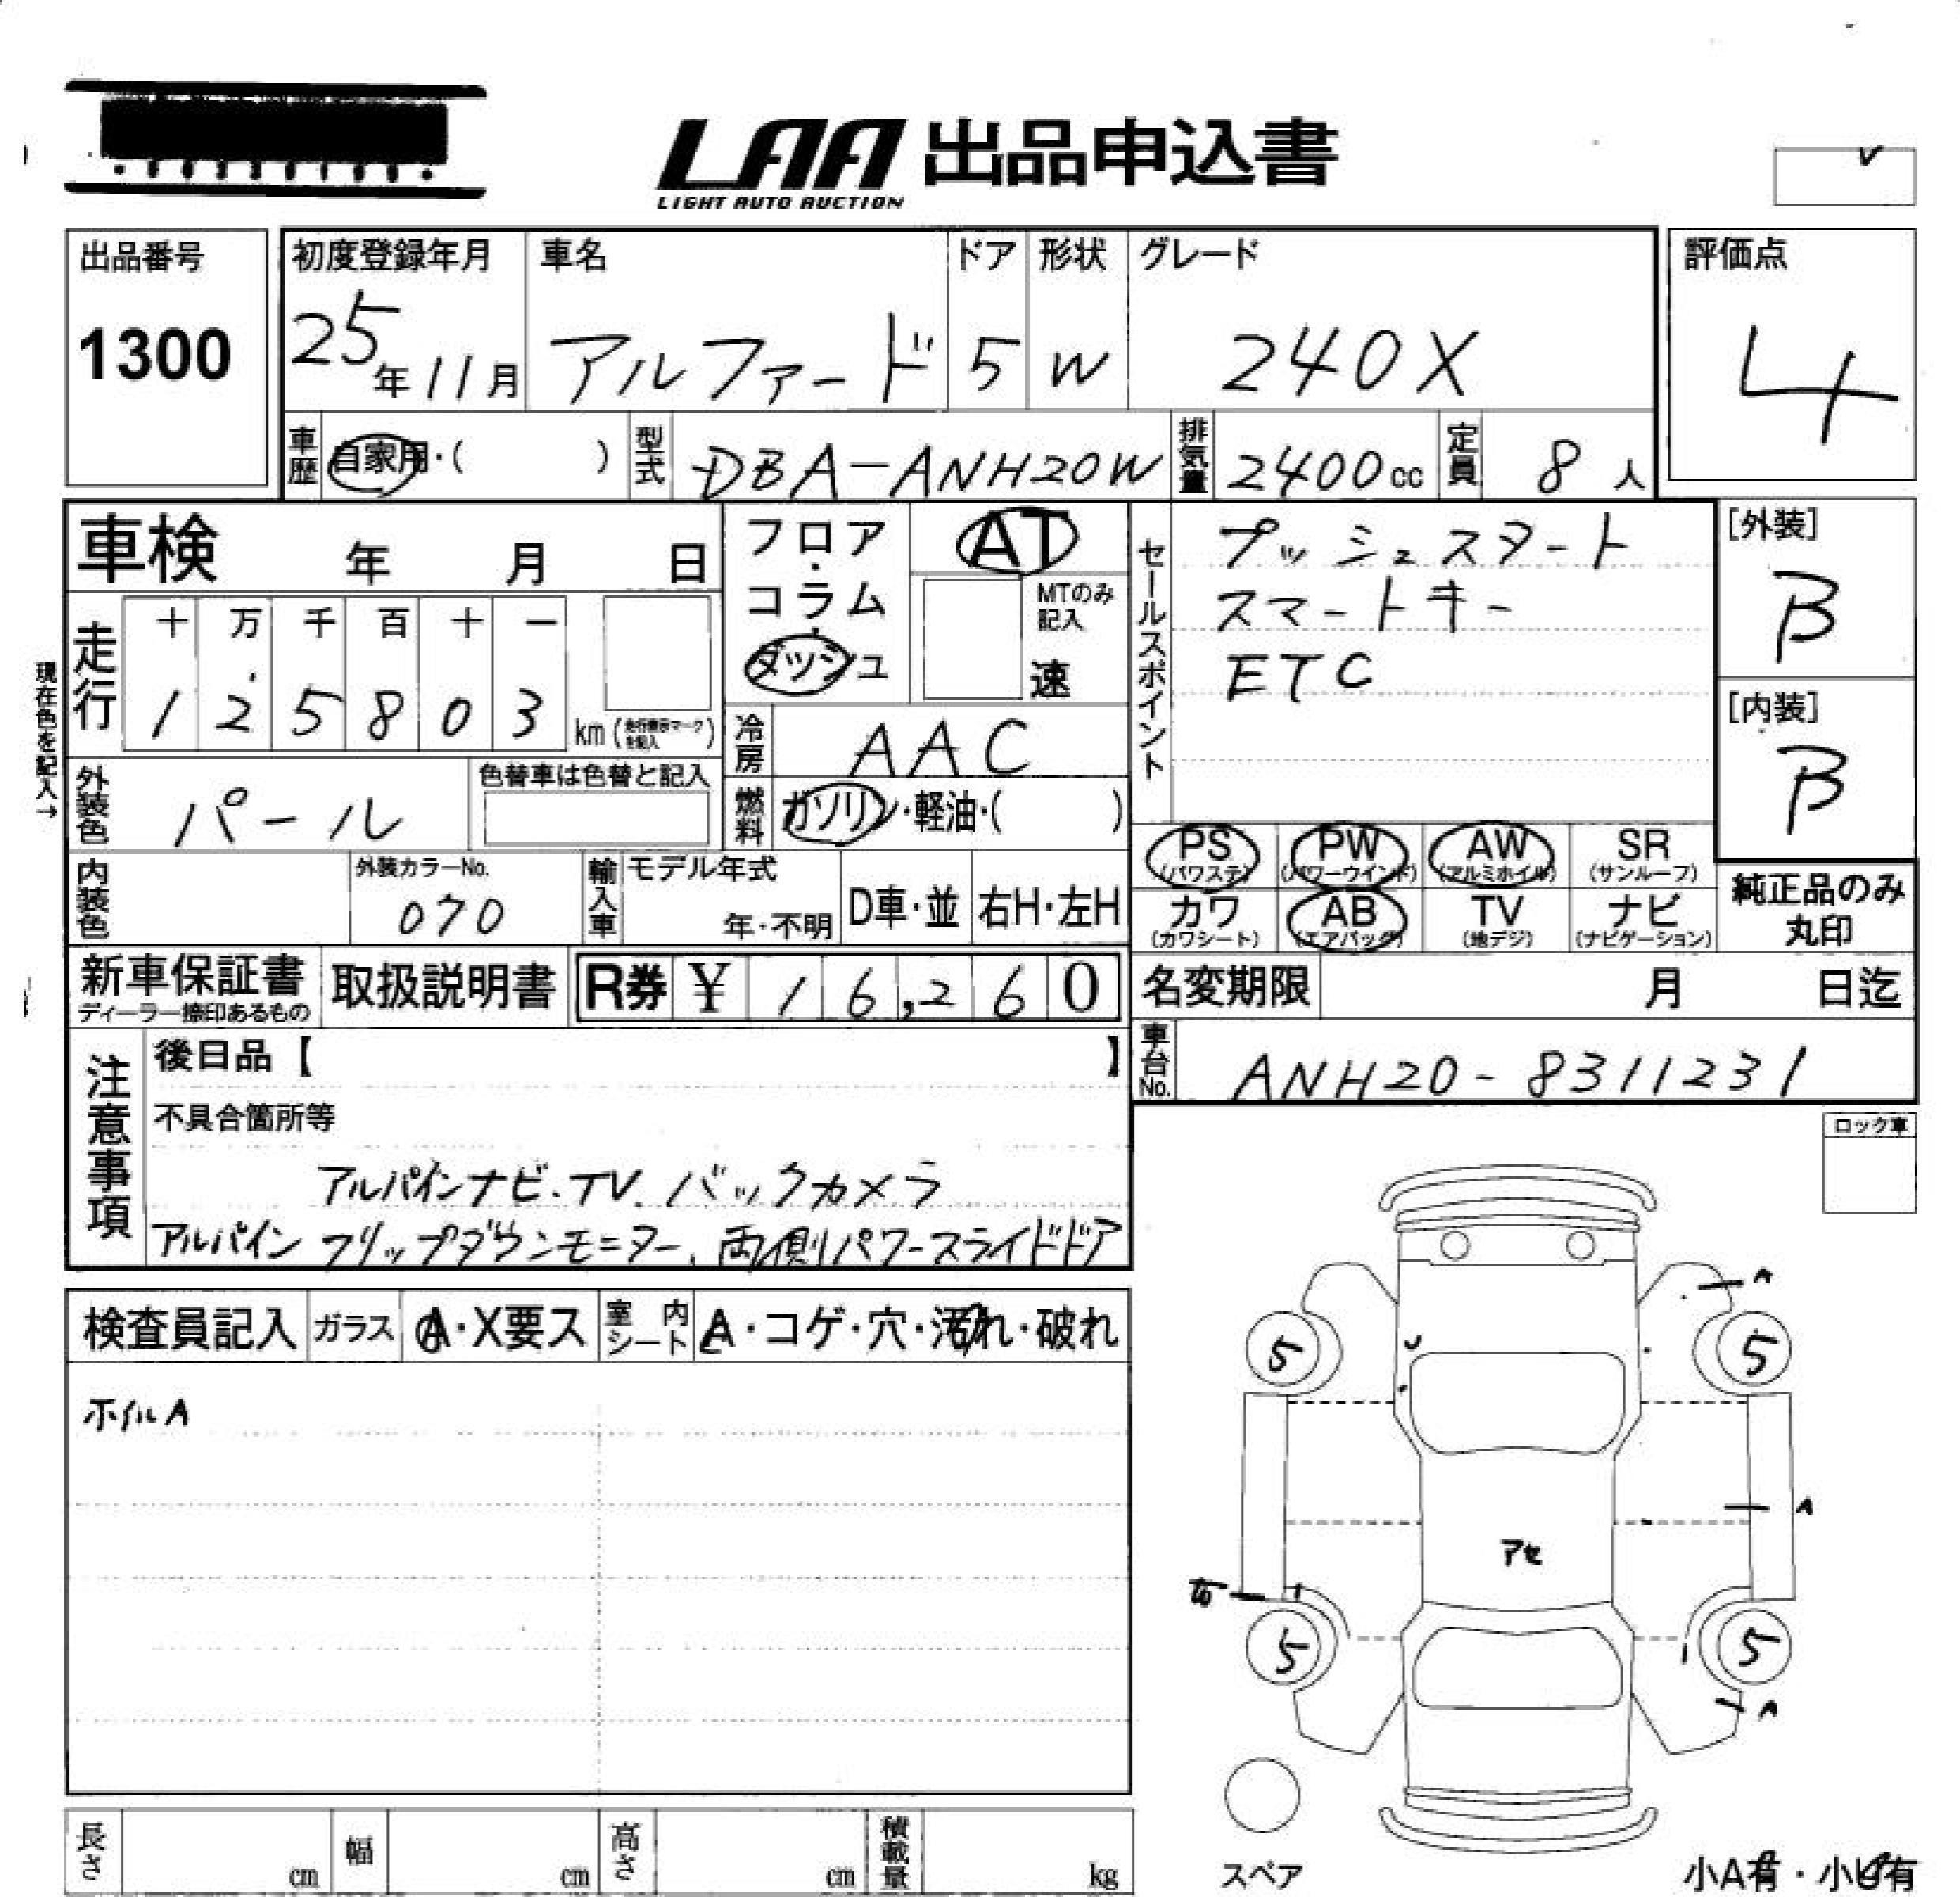 LAA 出品申込書
LIGHT AUTO AUCTION
出品番号
1300
初度登録年月
25年11月
車名
アルファード
ドア
5
形状
W
グレード
240X
評価点
4
車歴 自家用・( )
型式 DBA-ANH20W
排気量 2400cc
定員 8人
車検 年 月 日
フロア・コラム・ダッシュ
AT
MTのみ記入
速
セールスポイント
プッシュスタート
スマートキー
ETC
[外装]
B
[内装]
B
現在色を記入→
走行
十 万 千 百 十 一
1 2 5 8 0 3
km (走行表示マークを記入)
冷房 AAC
外装色 パール
色替車は色替と記入
燃料 ガソリン・軽油・( )
PS (パワステ)
PW (パワーウインド)
AW (アルミホイル)
SR (サンルーフ)
カワ (カワシート)
AB (エアバッグ)
TV (地デジ)
ナビ (ナビゲーション)
純正品のみ
丸印
内装色
外装カラーNo.
070
輸入車
モデル年式
年・不明
D車・並
右H・左H
新車保証書
ディーラー捺印あるもの
取扱説明書
R券 ¥ 16,260
名変期限 月 日迄
車台No. ANH20-8311231
注意事項
後日品【 】
不具合箇所等
アルパインナビ・TV、バックカメラ
アルパイン フリップダウンモニター、両側パワースライドドア
ロック車
検査員記入
ガラス A・X要ス
室内シート A・コゲ・穴・汚れ・破れ
ホイルA
A
5 5
A
アセ
5 5
A
スペア
長さ cm
幅 cm
高さ cm
積載量 kg
小A有・小U有